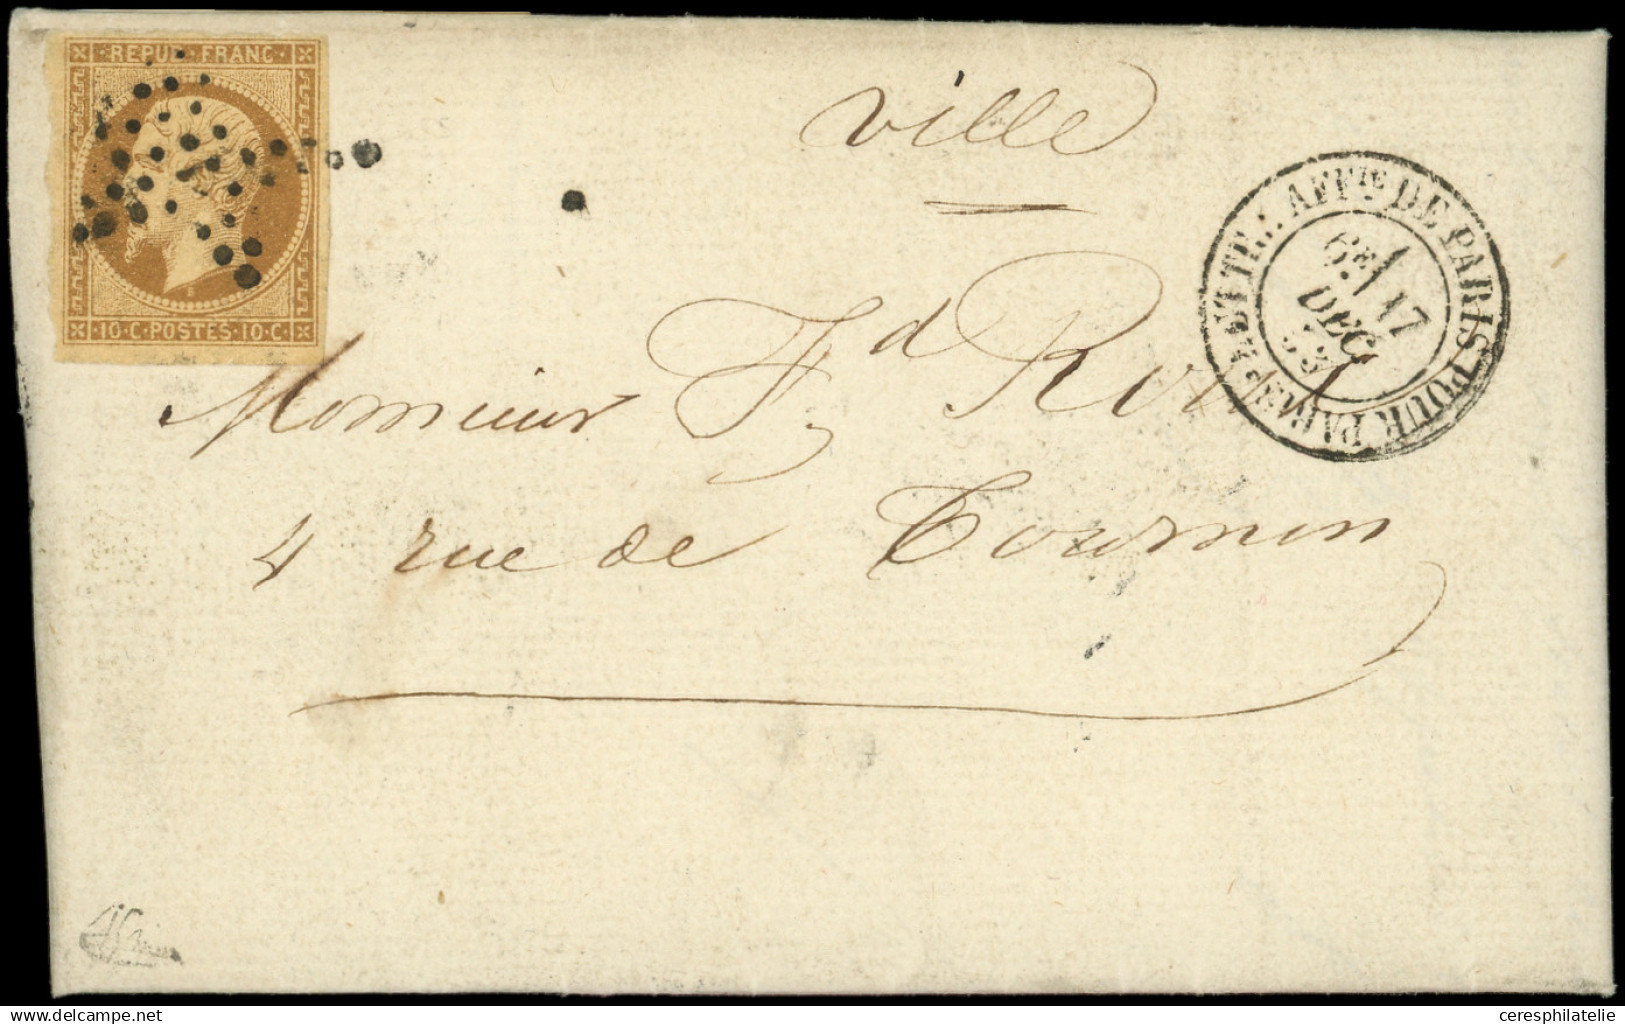 REPUB. FRANC.
10.C. POSTES 10.C.
ville
LETTR. AFFIE DE PARIS POUR PARIS
6E 17
DEC
53
Monsieur Fd
4 rue de Tournon
www.delcampe.net
ceresphilatelie